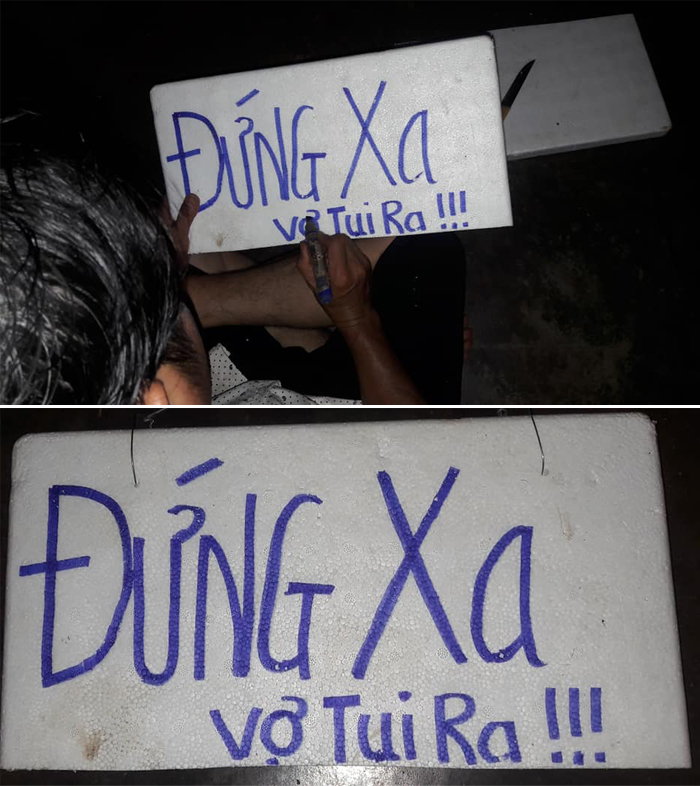 ĐỨNG Xa
vợ Tui Ra !!!
ĐỨNG Xa
vợ Tui Ra !!!